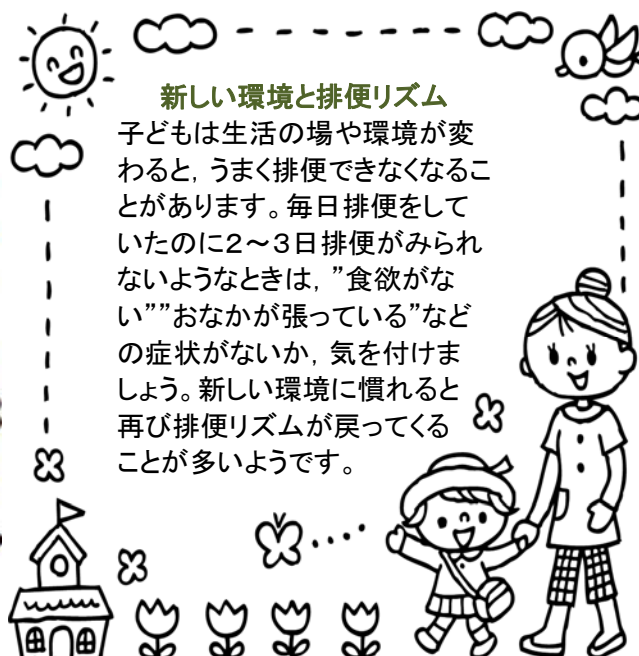 新しい環境と排便リズム
子どもは生活の場や環境が変
わると，うまく排便できなくなるこ
とがあります。毎日排便をして
いたのに２～３日排便がみられ
ないようなときは，”食欲がな
い””おなかが張っている”など
の症状がないか，気を付けま
しょう。新しい環境に慣れると
再び排便リズムが戻ってくる
ことが多いようです。